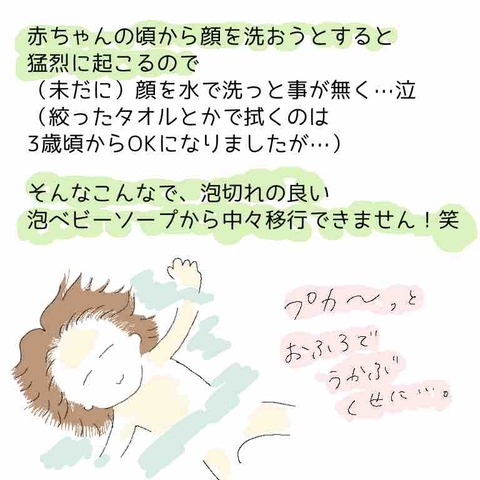 赤ちゃんの頃から顔を洗おうとすると
猛烈に起こるので
（未だに）顔を水で洗っと事が無く…泣
（絞ったタオルとかで拭くのは
3歳頃からOKになりましたが…）
そんなこんなで、泡切れの良い
泡ベビーソープから中々移行できません！笑
プカ〜っと
おふろで
うかぶ
くせに…。